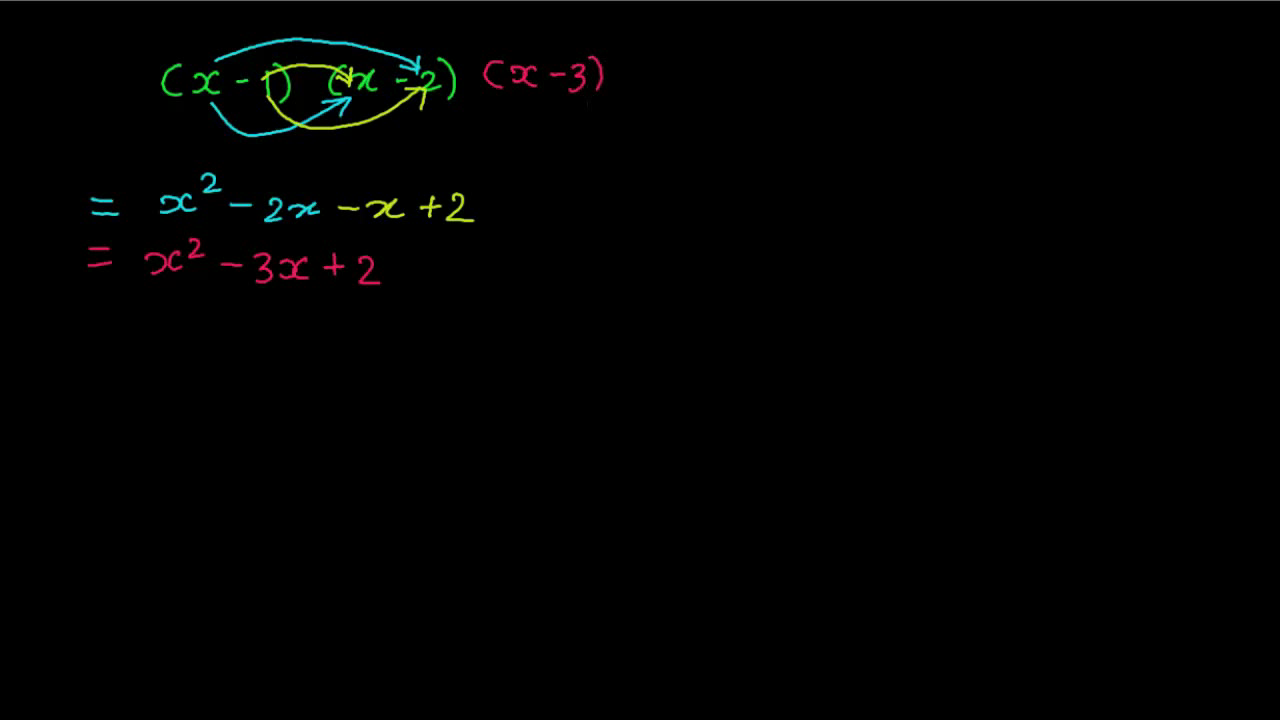 (x - 1) (x - 2) (x - 3)
= x² - 2x - x + 2
= x² - 3x + 2